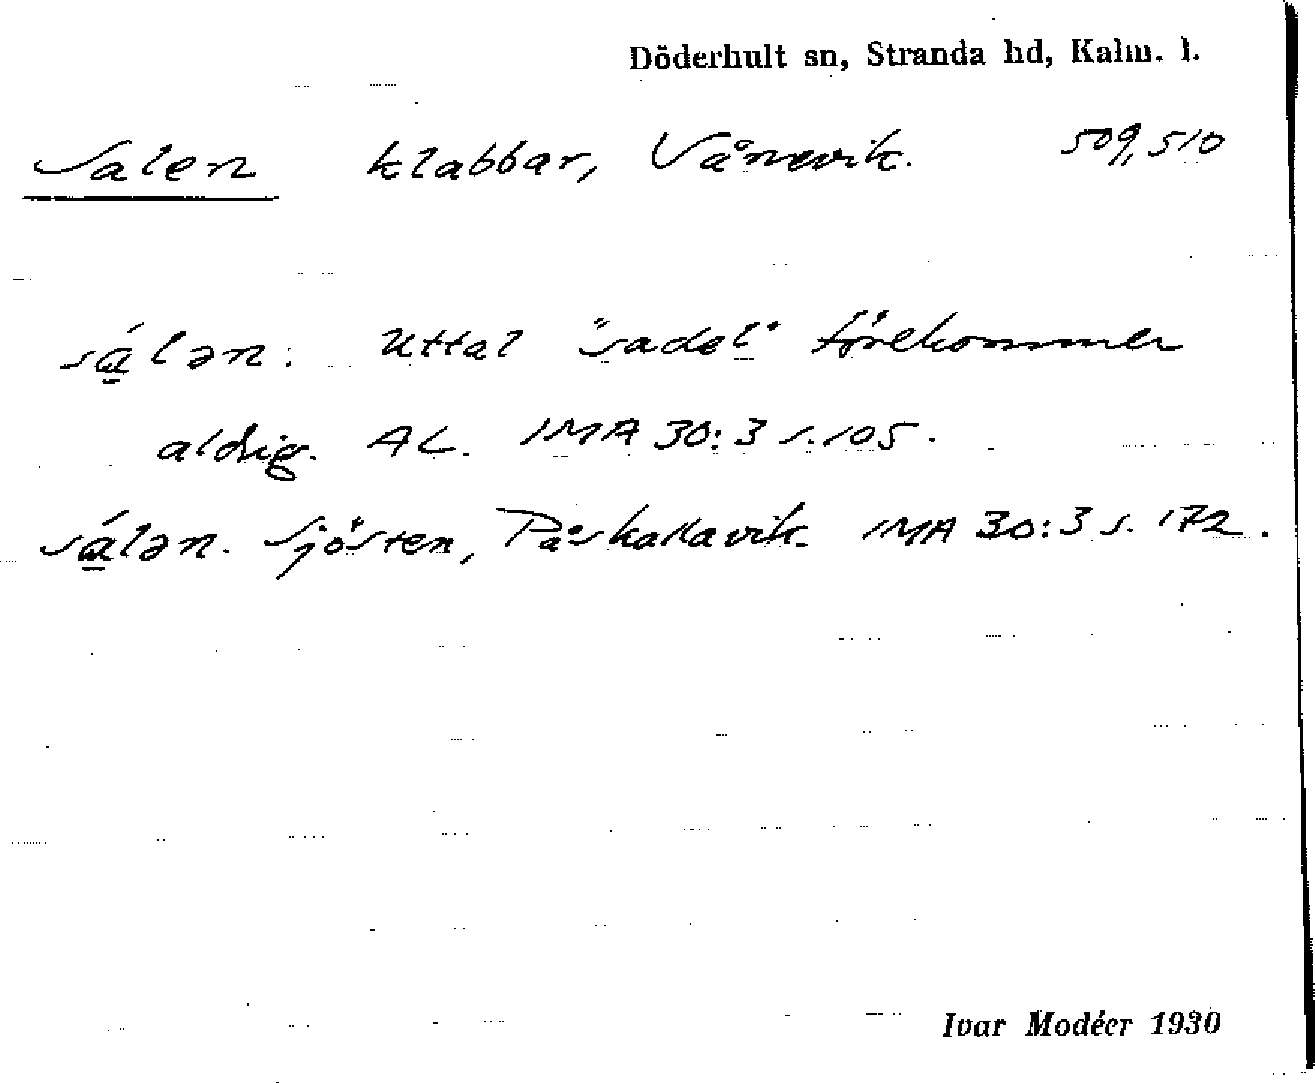 Döderhult sn, Stranda hd, Kalm. l.
Salen klabbar, Vånevik. 509, 510
sá̱lən. Uttal "sadel" förekommer
aldrig. AL. IMA 30:3 s. 105.
sá̱lən. Sjösten, Påskallavik. IMA 30:3 s. 172.
Ivar Modéer 1930